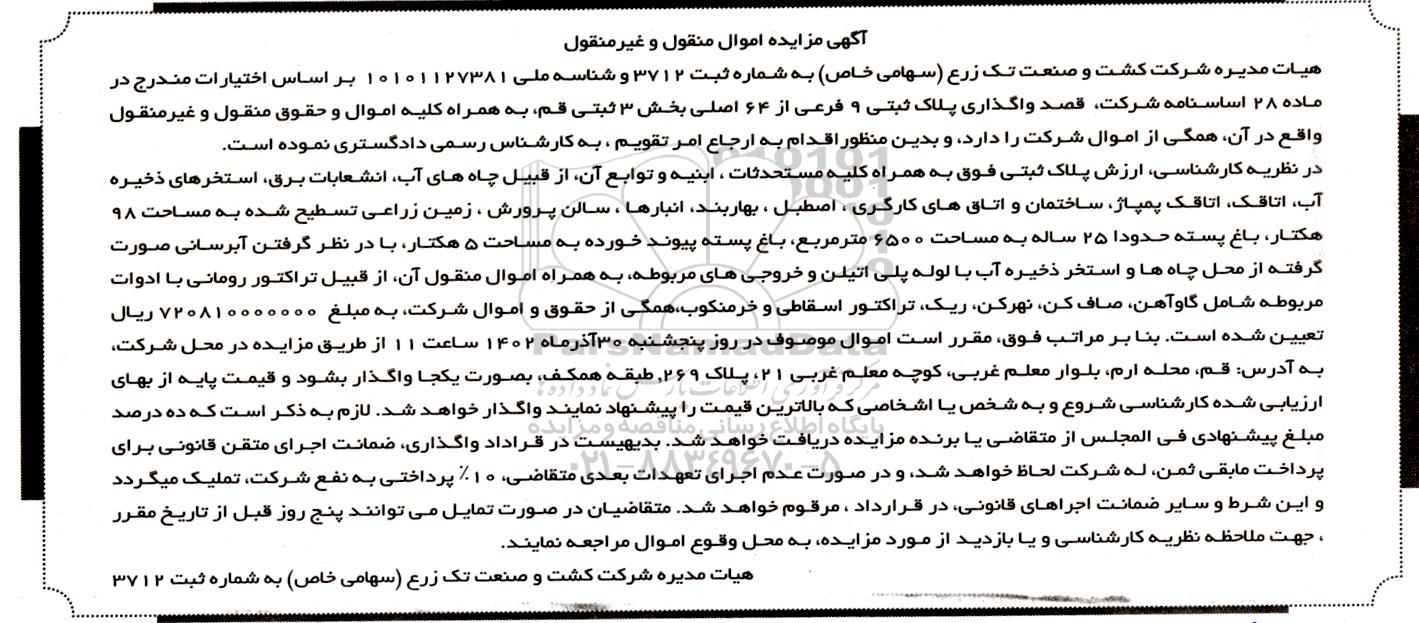 آگهی مزایده اموال منقول و غیرمنقول
هیات مدیره شرکت کشت و صنعت تک زرع (سهامی خاص) به شماره ثبت ۳۷۱۲ و شناسه ملی ۱۰۱۰۱۱۲۷۳۸۱ بر اساس اختیارات مندرج در
ماده ۲۸ اساسنامه شرکت، قصد واگذاری پلاک ثبتی ۹ فرعی از ۶۴ اصلی بخش ۳ ثبتی قم، به همراه کلیه اموال و حقوق منقول و غیرمنقول
واقع در آن، همگی از اموال شرکت را دارد، و بدین منظور اقدام به ارجاع امر تقویم ، به کارشناس رسمی دادگستری نموده است.
در نظریه کارشناسی، ارزش پلاک ثبتی فوق به همراه کلیه مستحدثات ، ابنیه و توابع آن، از قبیل چاه های آب، انشعابات برق، استخرهای ذخیره
آب، اتاقک، اتاقک پمپاژ، ساختمان و اتاق های کارگری ، اصطبل ، بهاربند، انبارها ، سالن پرورش ، زمین زراعی تسطیح شده به مساحت ۹۸
هکتار، باغ پسته حدودا ۲۵ ساله به مساحت ۶۵۰۰ مترمربع، باغ پسته پیوند خورده به مساحت ۵ هکتار، با در نظر گرفتن آبرسانی صورت
گرفته از محل چاه ها و استخر ذخیره آب با لوله پلی اتیلن و خروجی های مربوطه، به همراه اموال منقول آن، از قبیل تراکتور رومانی با ادوات
مربوطه شامل گاوآهن، صاف کن، نهرکن، ریک، تراکتور اسقاطی و خرمنکوب،همگی از حقوق و اموال شرکت، به مبلغ ۷۲۰۸۱۰۰۰۰۰۰۰ ریال
تعیین شده است. بنا بر مراتب فوق، مقرر است اموال موصوف در روز پنجشنبه ۳۰آذرماه ۱۴۰۲ ساعت ۱۱ از طریق مزایده در محل شرکت،
به آدرس: قم، محله ارم، بلوار معلم غربی، کوچه معلم غربی ۲۱، پلاک ۲۶۹، طبقه همکف، بصورت یکجا واگذار بشود و قیمت پایه از بهای
ارزیابی شده کارشناسی شروع و به شخص یا اشخاصی که بالاترین قیمت را پیشنهاد نمایند واگذار خواهد شد. لازم به ذکر است که ده درصد
مبلغ پیشنهادی فی المجلس از متقاضی یا برنده مزایده دریافت خواهد شد. بدیهیست در قراداد واگذاری، ضمانت اجرای متقن قانونی برای
پرداخت مابقی ثمن، له شرکت لحاظ خواهد شد، و در صورت عدم اجرای تعهدات بعدی متقاضی، ۱۰٪ پرداختی به نفع شرکت، تملیک میگردد
و این شرط و سایر ضمانت اجراهای قانونی، در قرارداد ، مرقوم خواهد شد. متقاضیان در صورت تمایل می توانند پنج روز قبل از تاریخ مقرر
، جهت ملاحظه نظریه کارشناسی و یا بازدید از مورد مزایده، به محل وقوع اموال مراجعه نمایند.
هیات مدیره شرکت کشت و صنعت تک زرع (سهامی خاص) به شماره ثبت ۳۷۱۲
ParsNamadData
پایگاه اطلاع رسانی مناقصه و مزایده
۰۲۱-۸۸۳۴۹۶۷۰-۵